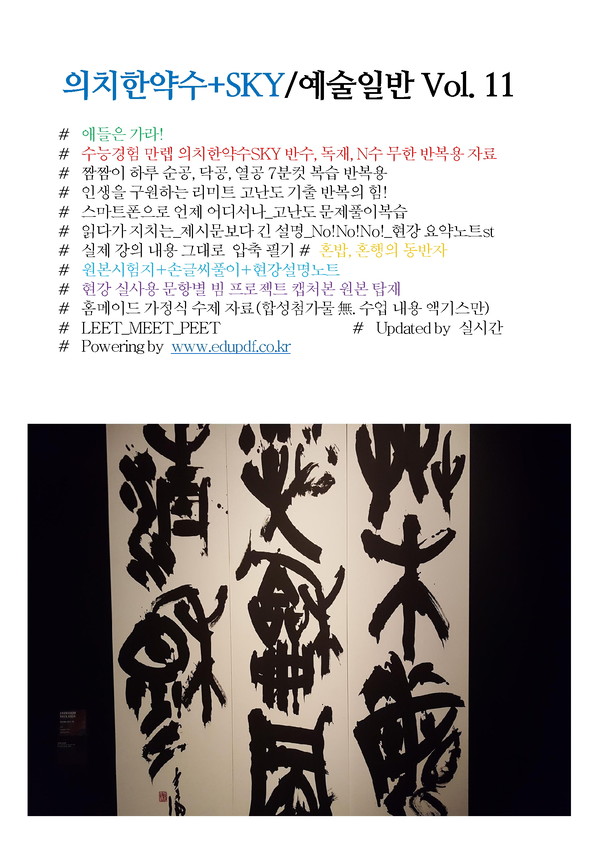 의치한약수+SKY/예술일반 Vol. 11
# 애들은 가라!
# 수능경험 만렙 의치한약수SKY 반수, 독재, N수 무한 반복용 자료
# 짬짬이 하루 순공, 닥공, 열공 7분컷 복습 반복용
# 인생을 구원하는 리미트 고난도 기출 반복의 힘!
# 스마트폰으로 언제 어디서나_고난도 문제풀이복습
# 읽다가 지치는_제시문보다 긴 설명_No!No!No!_현강 요약노트st
# 실제 강의 내용 그대로 압축 필기 # 혼밥, 혼행의 동반자
# 원본시험지+손글씨풀이+현강설명노트
# 현강 실사용 문항별 빔 프로젝트 캡처본 원본 탑재
# 홈메이드 가정식 수제 자료(합성첨가물 無. 수업 내용 엑기스만)
# LEET_MEET_PEET # Updated by 실시간
# Powering by www.edupdf.co.kr